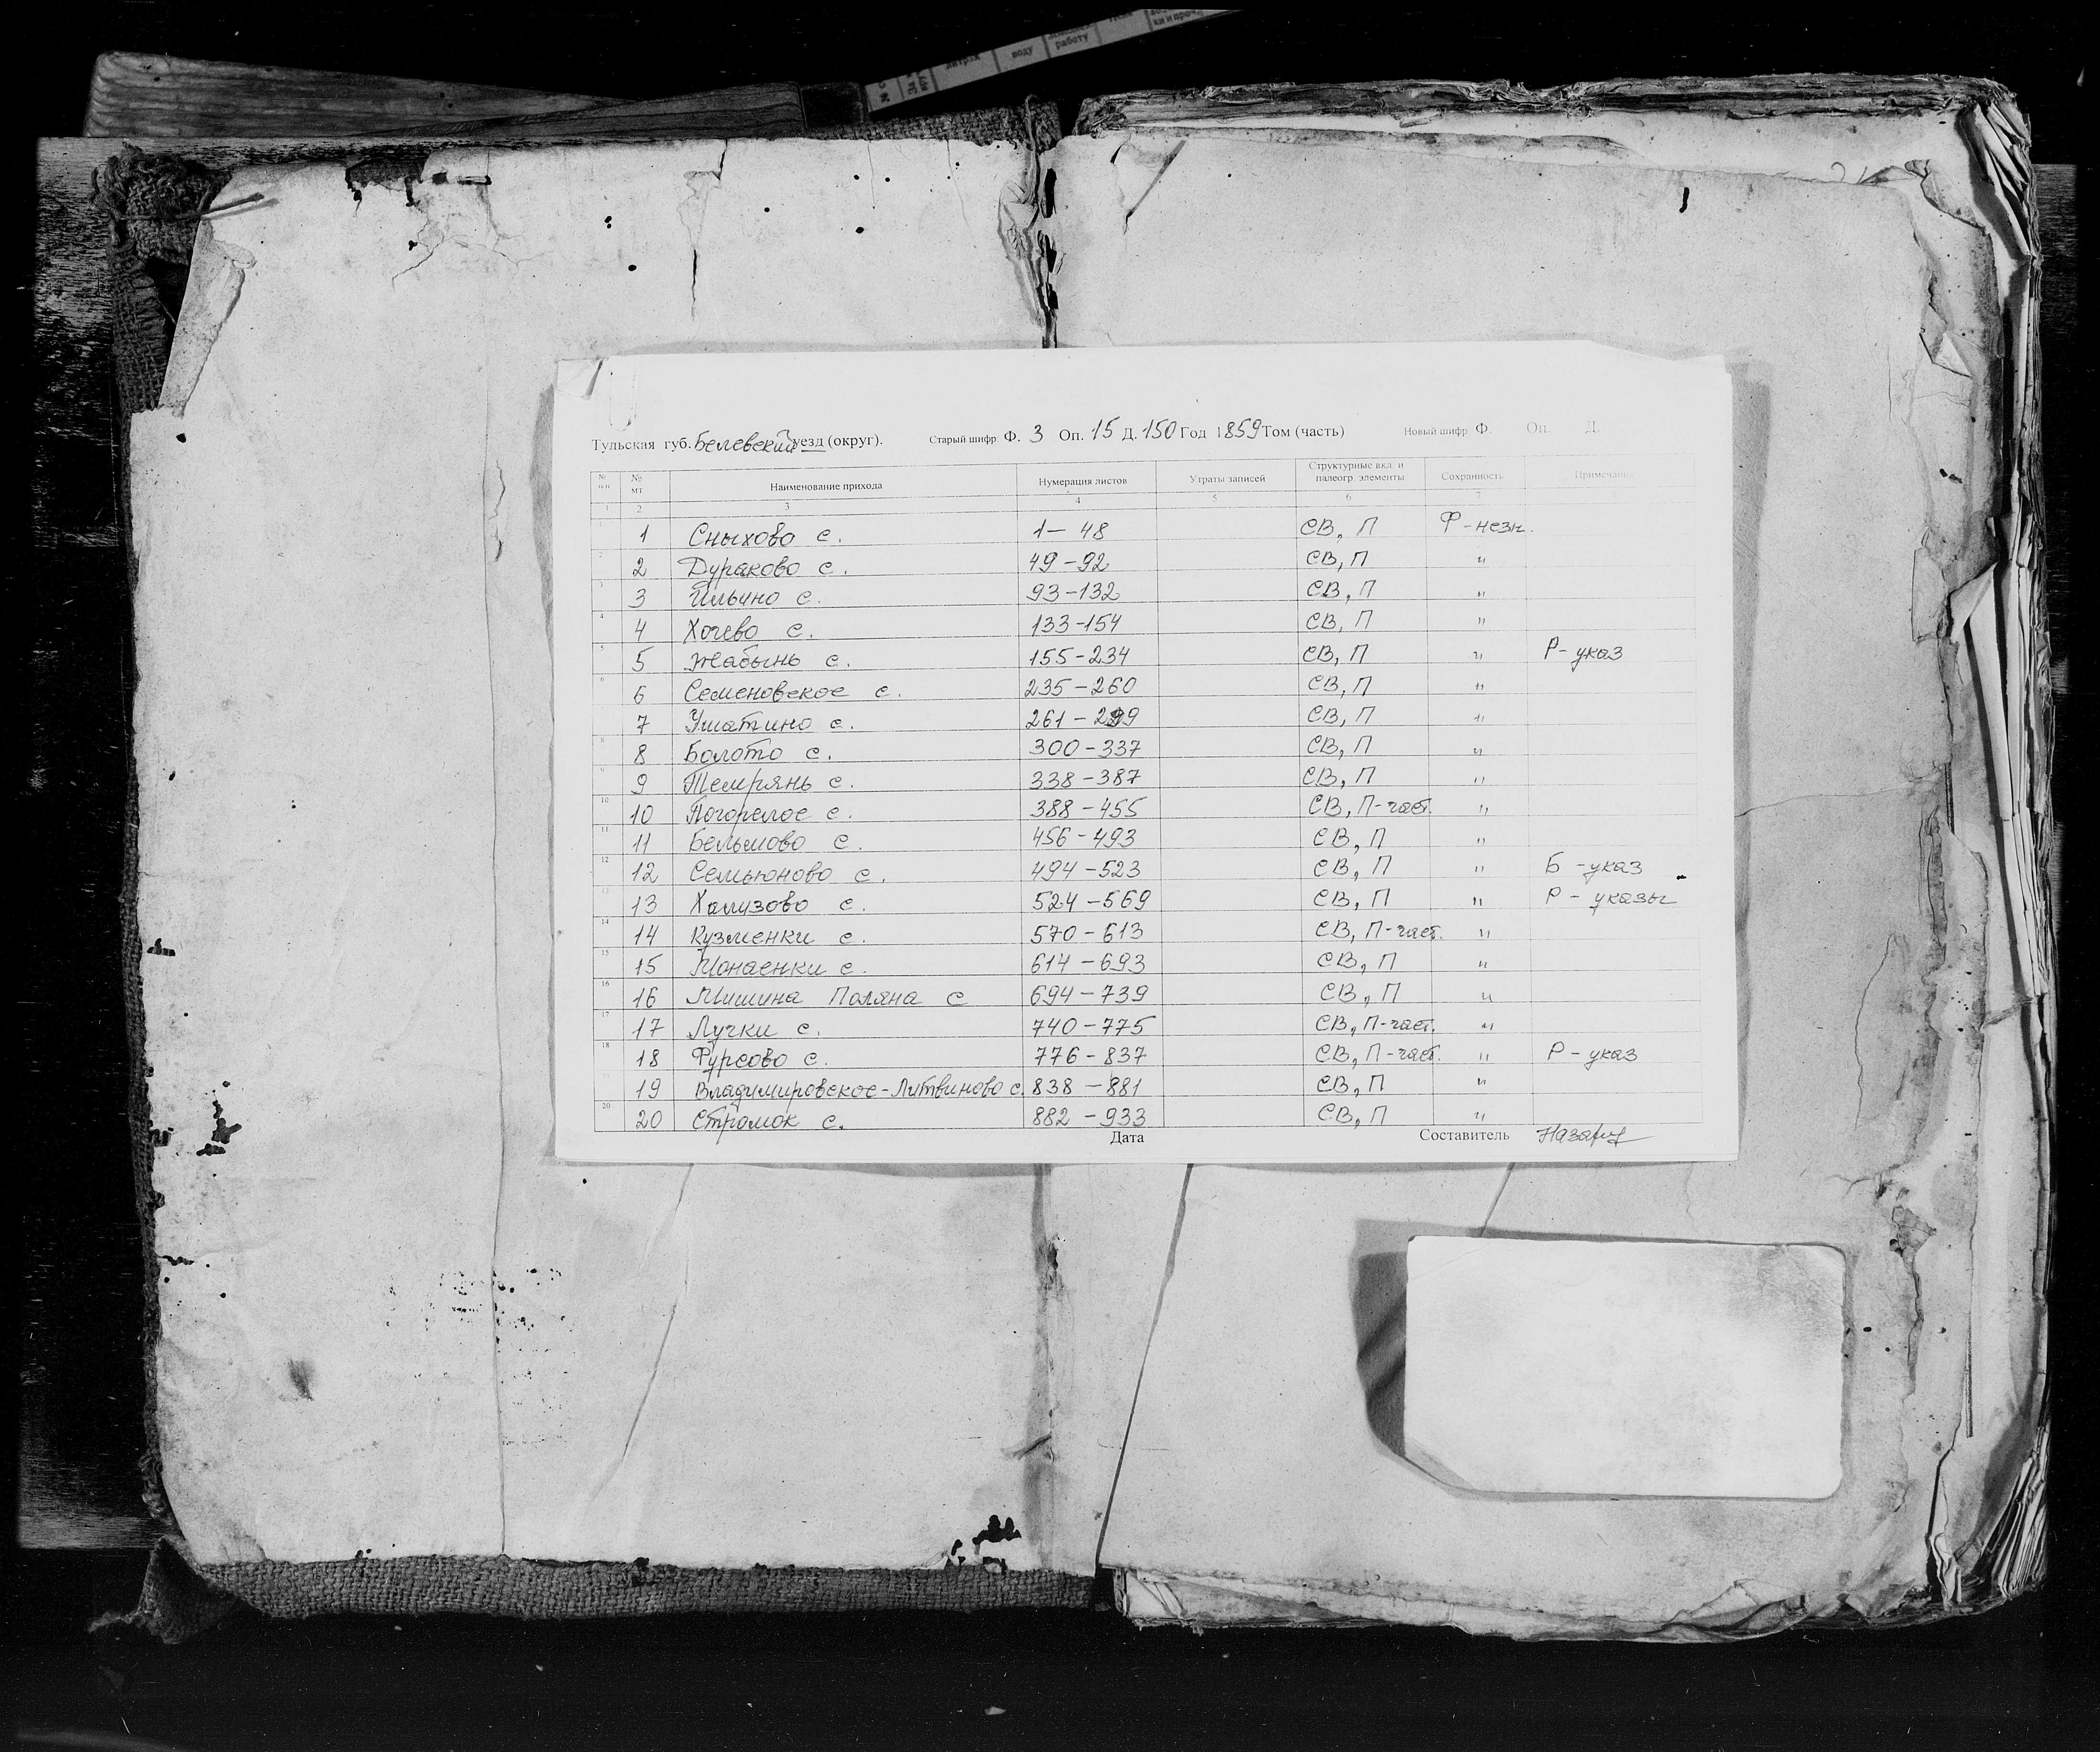 литраж воду домашнюю работу ки и проч.
Тульская губ. Белевский уезд (округ). Старый шифр Ф. 3 Оп. 15 Д. 150 Год 1859 Том (часть) Новый шифр Ф. Оп. Д.
№ пп № мт Наименование прихода Нумерация листов Утраты записей Структурные вкл. и палеогр. элементы Сохранность Примечания
1 2 3 4 5 6 7
1 Сныхово с. 1 – 48 СВ, П Ф - незн.
2 Дураково с. 49 – 92 СВ, П "
3 Ильино с. 93 – 132 СВ, П "
4 4 Хочево с. 133 - 154 СВ, П "
5 5 Жабынь с. 155 - 234 СВ, П " Р - указ
6 6 Семеновское с. 235 – 260 СВ, П "
7 Ушатино с. 261 – 299 СВ, П "
8 8 Болото с. 300 - 337 СВ, П "
9 Темрянь с. 338 - 387 СВ, П "
10 10 Погорелое с. 388 - 455 СВ, П - част. "
11 11 Бельмово с. 456 - 493 СВ, П "
12 12 Семьюново с. 494 - 523 СВ, П " Б - указ
13 13 Хализово с. 524 - 569 СВ, П " Р - указы
14 14 Кузменки с. 570 - 613 СВ, П - част. "
15 15 Монаенки с. 614 - 693 СВ, П "
16 16 Мишина Поляна с 694 - 739 СВ, П "
17 17 Лучки с. 740 - 775 СВ, П - част. "
18 18 Фурсово с. 776 - 837 СВ, П - част. " Р - указ
19 Владимировское - Литвиново с. 838 - 881 СВ, П "
20 20 Стромок с. 882 - 933 СВ, П "
Дата Составитель